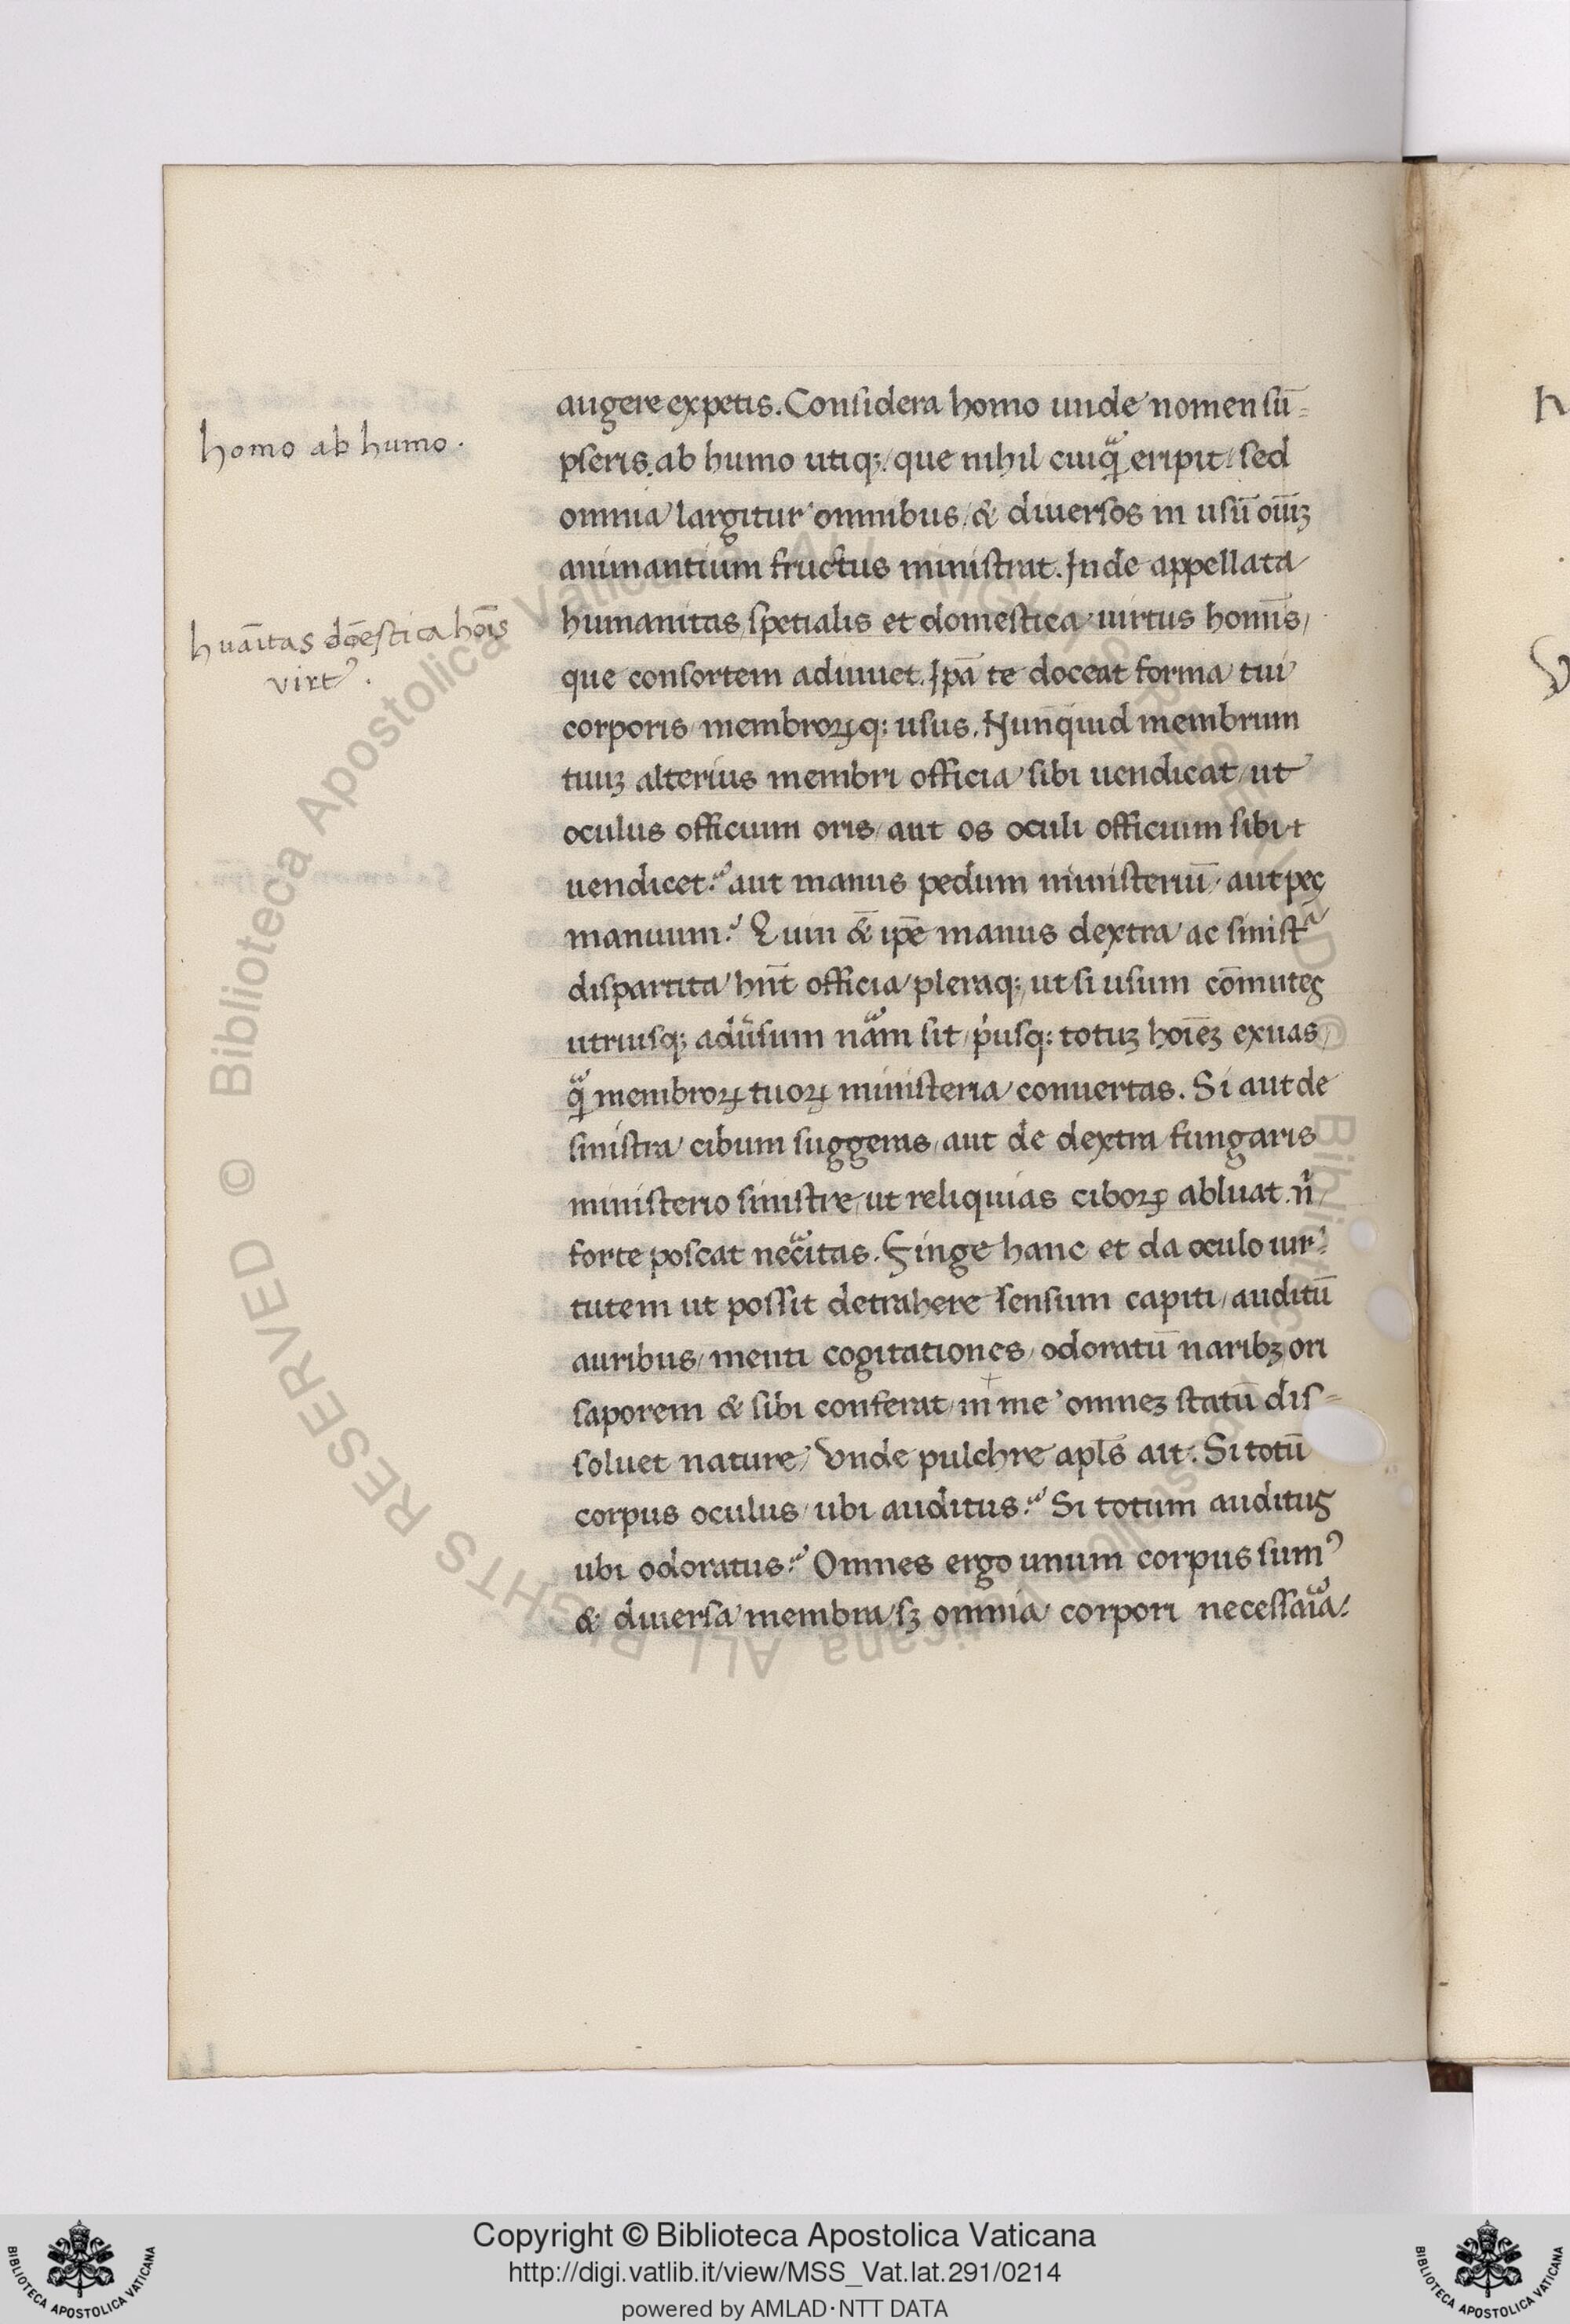 homo ab humo.
huāītas dōestica hoīs
virtꝰ.
augere expetis. Considera homo unde nomen sū=
pseris. ab humo utiqꝫ/ que nihil cuiqᷓ eripit/ sed
omnia largitur omnibus/ & diuersos in usū oīuꝫ
animantium fructus ministrat. Inde appellata
humanitas/ spetialis et domestica uirtus homīs/
que consortem adiuuet. Ipā te doceat forma tui
corporis/ membroꝝqꝫ usus. Nunquid membrum
tuuꝫ alterius membri officia sibi uendicat/ ut
oculus officium oris/ aut os oculi officium sibi
uendicet? aut manus pedum ministeriū/ aut pes
manuum? Quin & ipē manus dextra ac sinistᷓ
dispartita hn̄t officia pleraqꝫ, ut si usum cōmutes
utriusqꝫ adūsum naᷓm sit/ pͥusqꝫ totuꝫ hoīeꝫ exuas/
qᷓ membroꝝ tuoꝝ ministeria conuertas. Si aut de
sinistra cibum suggeras/ aut de dextra fungaris
ministerio sinistre/ ut reliquias ciboꝝ abluat. nͥ
forte poscat necᷓitas. Finge hanc et da oculo uir=
tutem ut possit detrahere sensum capiti/ auditū
auribus/ menti cogitationes/ odoratū naribꝫ/ ori
saporem & sibi conferat/ in me omneꝫ statū dis=
soluet nature/ Vnde pulchre apl̄s ait. Si totū
corpus oculus/ ubi auditus? Si totum auditus
ubi odoratus? Omnes ergo unum corpus sumꝰ
& diuersa membra/ sꝫ omnia corpori necessaᷓia.
Copyright © Biblioteca Apostolica Vaticana
http://digi.vatlib.it/view/MSS_Vat.lat.291/0214
powered by AMLAD·NTT DATA
BIBLIOTECA APOSTOLICA VATICANA
BIBLIOTECA APOSTOLICA VATICANA
© Biblioteca Apostolica Vaticana ALL RIGHTS RESERVED
© Biblioteca Apostolica Vaticana ALL RIGHTS RESERVED